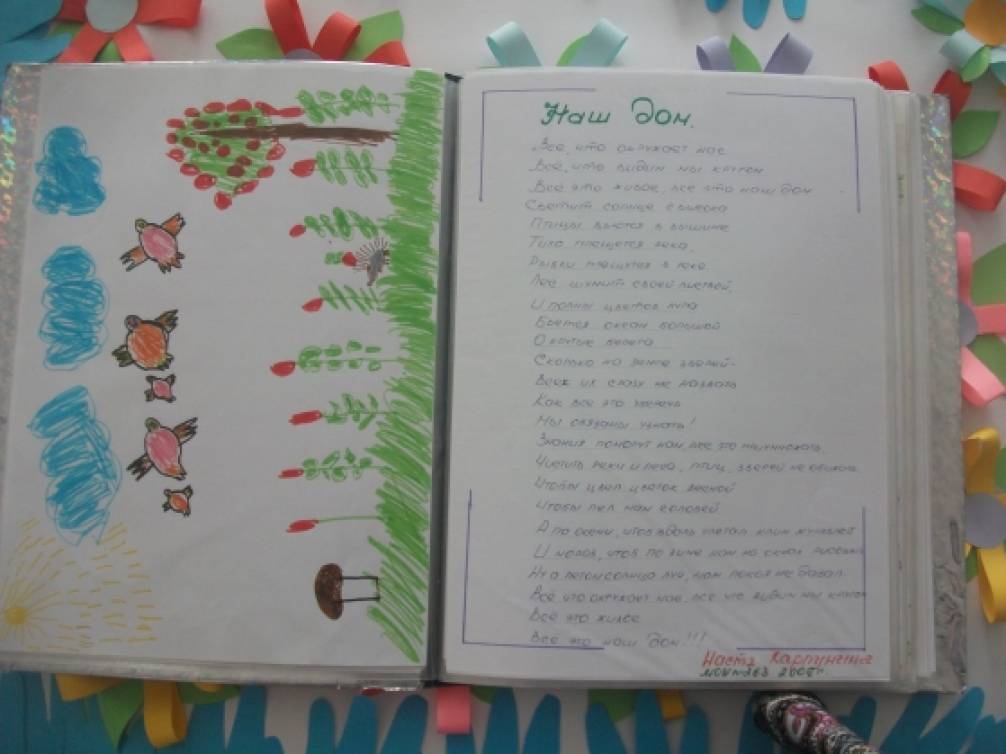 Наш Дом.
Всё, что окружает нас
Всё, что видим мы кругом
Всё это живое, все это наш дом
Светит солнце с высока
Птицы вьются в вышине
Тихо плещется река.
Рыбки плещутся в реке
Лес шумит своей листвой.
И полны цветов луга
Бьётся океан большой
О крутые берега
Сколько на земле зверей-
Всех их сразу не назвать
Как все это сберечь
Мы обязаны узнать!
Знания помогут нам, все это
Чистить реки и леса, птиц, зверей не обижать
Чтобы цвел цветок весной
Чтобы пел нам соловей
А по осени, чтоб вдаль улетал клин журавлей
И мороз, чтоб по зиме нам на окнах рисовал
Ну а летом солнца луч, нам покоя не давал.
Всё что окружает нас, все что видим мы кругом
Всё это живое
Всё это наш дом!!!
Настя
2008г.